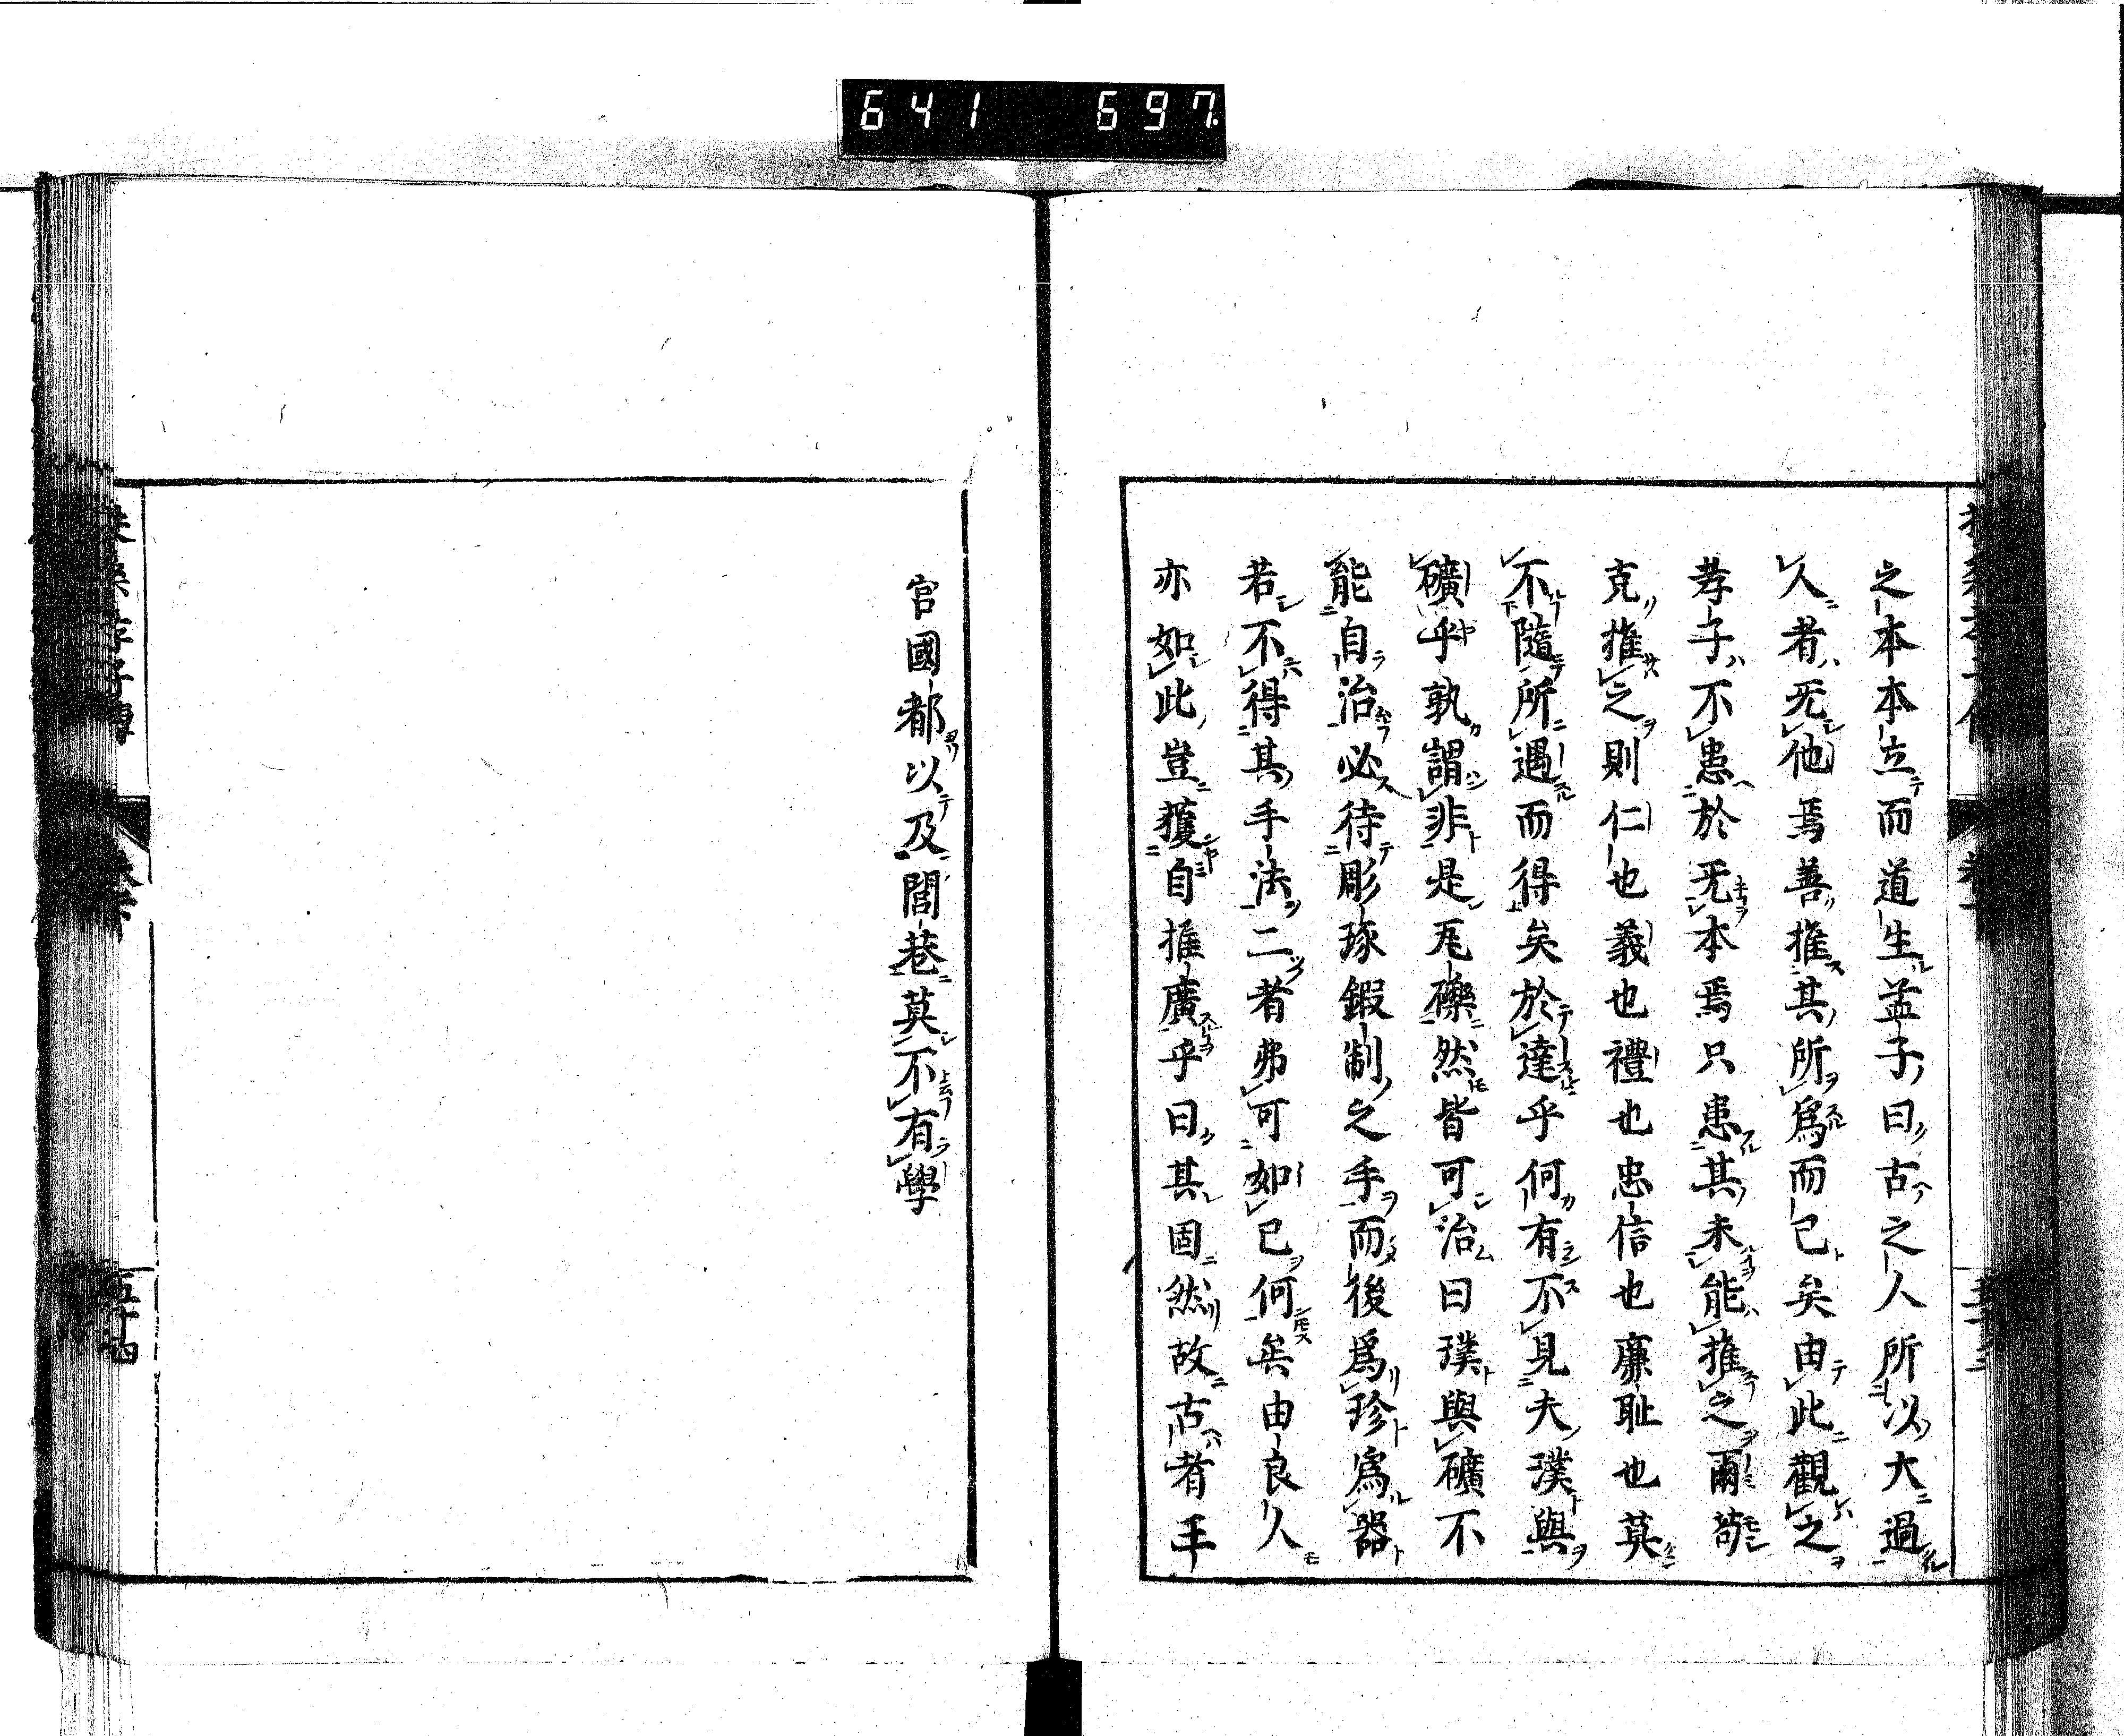 641 697
之本本立而道生孟子曰古之人所以大過
人者无他焉善推其所爲而已矣由此觀之
孝子不患於无本焉只患其未能推之爾苟
克推之則仁也義也禮也忠信也廉耻也莫
不隨所遇而得矣於達乎何有不見夫璞與
礦乎孰謂非是瓦礫然皆可治曰璞與礦不
能自治必待彫琢鍜制之手而後爲珍爲器
若不得其手法二者弗可如已何矣由良人
亦如此豈獲自推廣乎曰其固然故古者王
官國都以及閭巷莫不有學
五十四